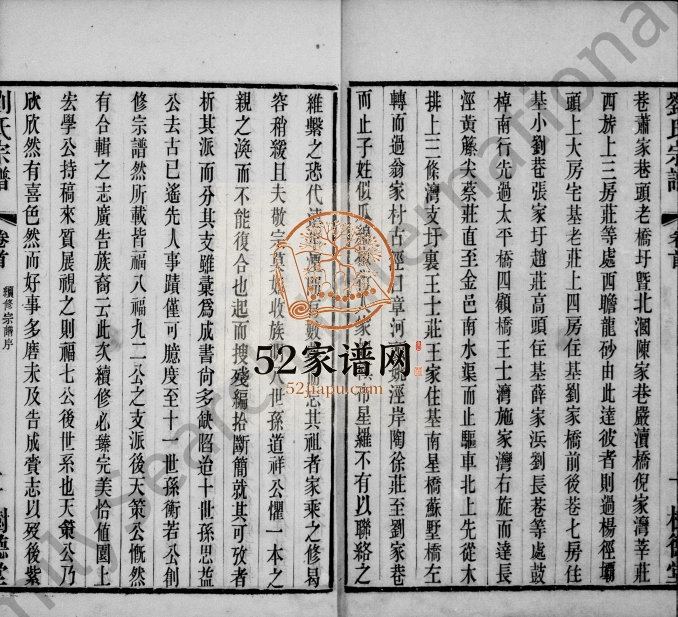 巷蕭家巷頭老橋圩暨北漍陳家巷嚴瀆橋倪家灣莘莊
西旂上三房莊等處西瞻龍砂由此達彼者則過楊徑壩
頭上大房宅基老莊上四房住基劉家橋前後巷七房住
基小劉巷張家圩趙莊高頭住基薛家浜劉長巷等處鼓
棹南行先過太平橋四顧橋王士灣施家灣右旋而達長
涇黃 尖蔡莊直至金邑南水渠而止驅車北上先從木
排上三條灣文圩裏王士莊王家住基南星橋蘇墅橋左
轉而過翁家村古涇口章河 姚涇岸陶徐莊至劉家巷
而止子姓似瓜綿 家 星羅不有以聯絡之
維繫之恐代遠 忘其祖者家乘之修曷
容稍緩且夫敬宗莫 收族 世孫道祥公懼一本之
親之渙而不能復合也起而搜殘編拾斷簡就其可攷者
析其派而分其支雖彙爲成書尙多缺陷迨十世孫思益
公去古已遙先人事蹟僅可臆度至十一世孫衡若公創
修宗譜然所載皆福八福九二公之支派後天策公慨然
有合輯之志廣告族裔云此次續修必臻完美恰値園上
宏學公持稿來質展視之則福七公後世系也天策公乃
欣欣然有喜色然而好事多磨未及告成賫志以歿後紫
劉氏宗譜
卷首
劉氏宗譜
卷首
續修宗譜序
樹德堂
52家谱网
www.52jiapu.com
FamilySearch International